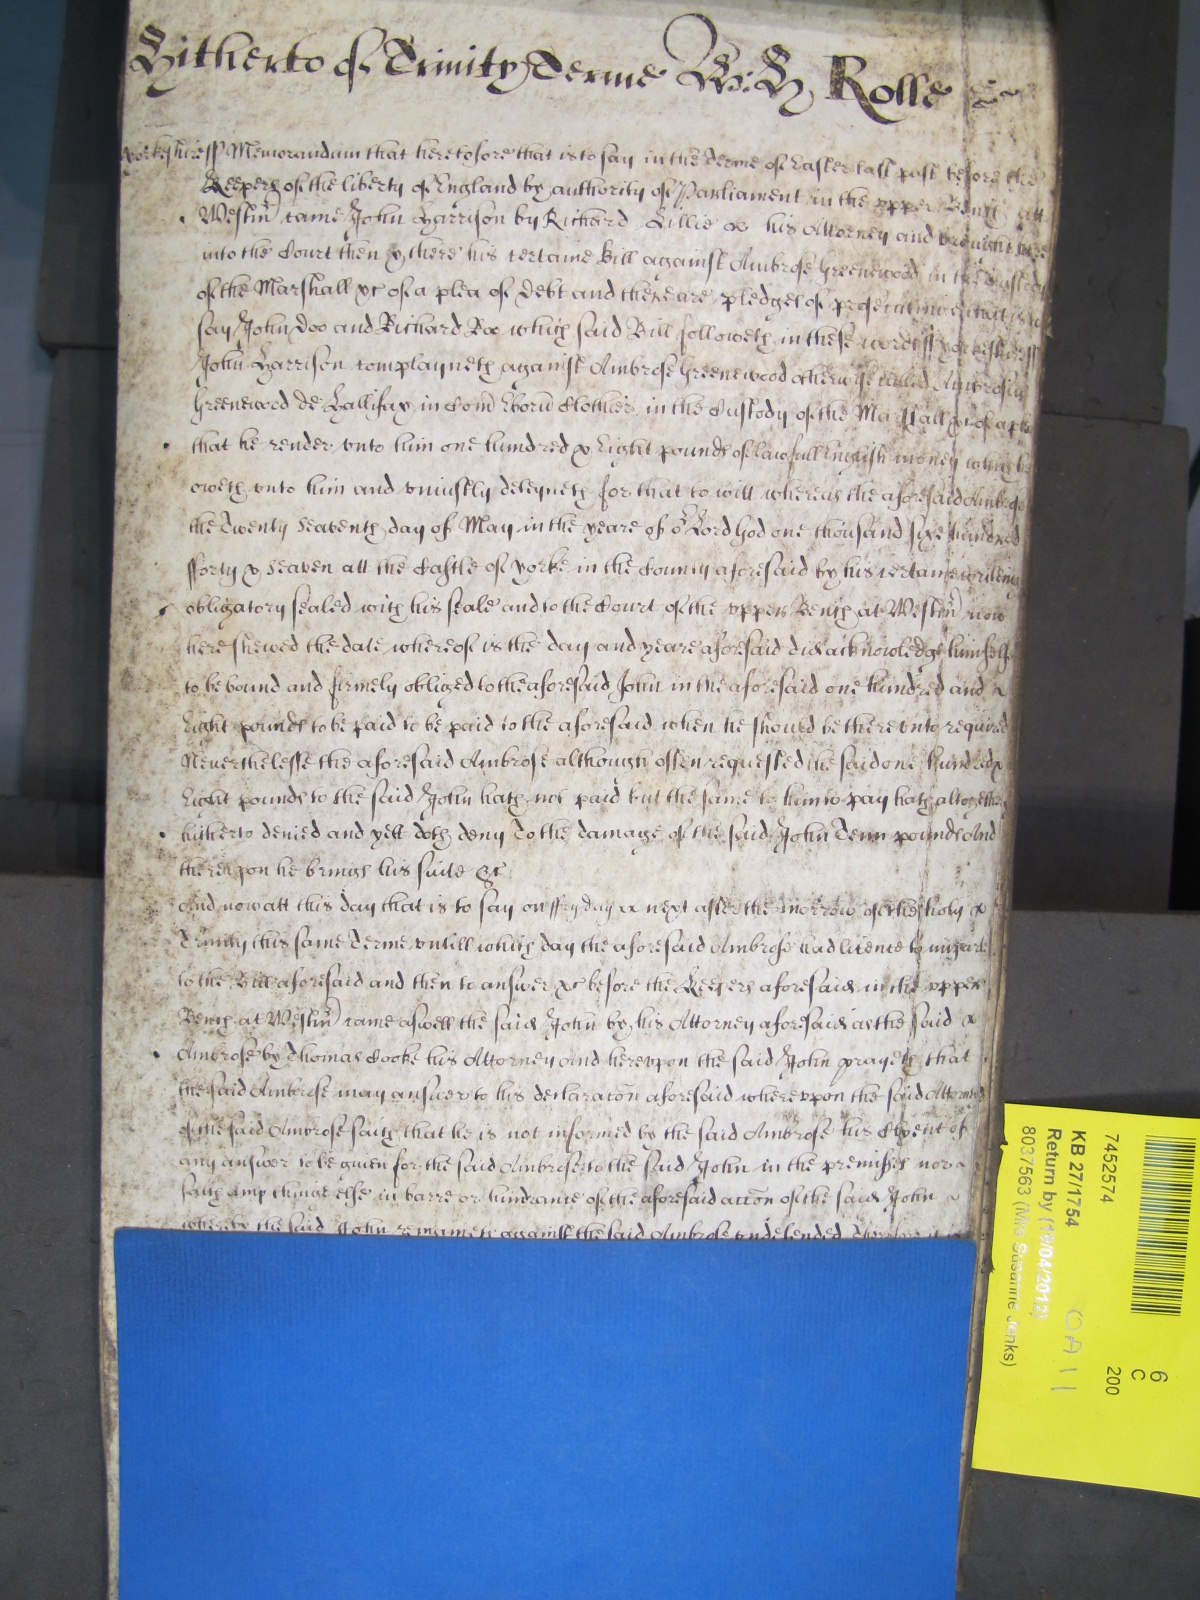 Hitherto of Trinity Terme W: H: Rolle
Yorkeshire ss Memorandum that heretofore that is to say in the Terme of Easter last past before the
Keepers of the liberty of England by authority of Parliament in the upper Bench att
Westm̃ came John Harrison by Richard Lillie his Attorney and brought here
into the Court then & there his certaine Bill against Ambrose Greenewood in the Custody
of the Marshall &c of a plea of Debt and there are pledges of prosecution that is to
say John Doo and Richard Roo which said Bill followeth in these words ss Yorkeshire ss
John Harrison complayneth against Ambrose Greenewood otherwise called Ambrosiu
Greenewood de Hallifax in Com̃ Eboru Clothier in the Custody of the Marshall &c of a plea
that he render unto him one hundred & Eight pounds of lawfull English money which he
oweth unto him and uniustly deteyneth for that to witt whereas the aforesaid Ambrose
the Twenty Seaventh day of May in the yeare of or Lord God one thousand sixe hundred
fforty & Seaven att the Castle of Yorke in the County aforesaid by his certaine writing
obligatory sealed with his seale and to the Court of the upper Bench at Westm̃ now
here shewed the date whereof is the day and yeare aforesaid did acknowledge himselfe
to be bound and firmely obliged to the aforesaid John in the aforesaid one hundred and
Eight pounds to be paid to be paid to the aforesaid when he should be there unto required
Neverthelesse the aforesaid Ambrose although often requested the said one hundred &
Eight pounds to the said John hath not paid but the same to him to pay hath altogether
hitherto denied and yett doth deny To the damage of the said John Tenn pounds And
thereupon he brings his suite &c
And now att this day that is to say on ffryday next after the morrow of the holy
Trinity this same Terme untill which day the aforesaid Ambrose had licence to imparle
to the Bill aforesaid and then to answer &c before the Keepers aforesaid in the upper
Bench at Westm̃ came aswell the said John by his Attorney aforesaid as the said
Ambrose by Thomas Cooke his Attorney And hereupon the said John prayeth that
the said Ambrose may answer to his declaracõn aforesaid whereupon the said Attorney
of the said Ambrose saith that he is not informed by the said Ambrose his Clyent of
any answer to be given for the said Ambrose to the said John in the premisses nor
saith any thinge else in barre or hindrance of the aforesaid accõn of the said John
whereby the said John remaineth against the said Ambrose undefended Therefore it is
7452574
KB 27/1754
Return by (19/04/2012)
8037563 (Mrs Susanne Jenks)
6
C
200
OA 11